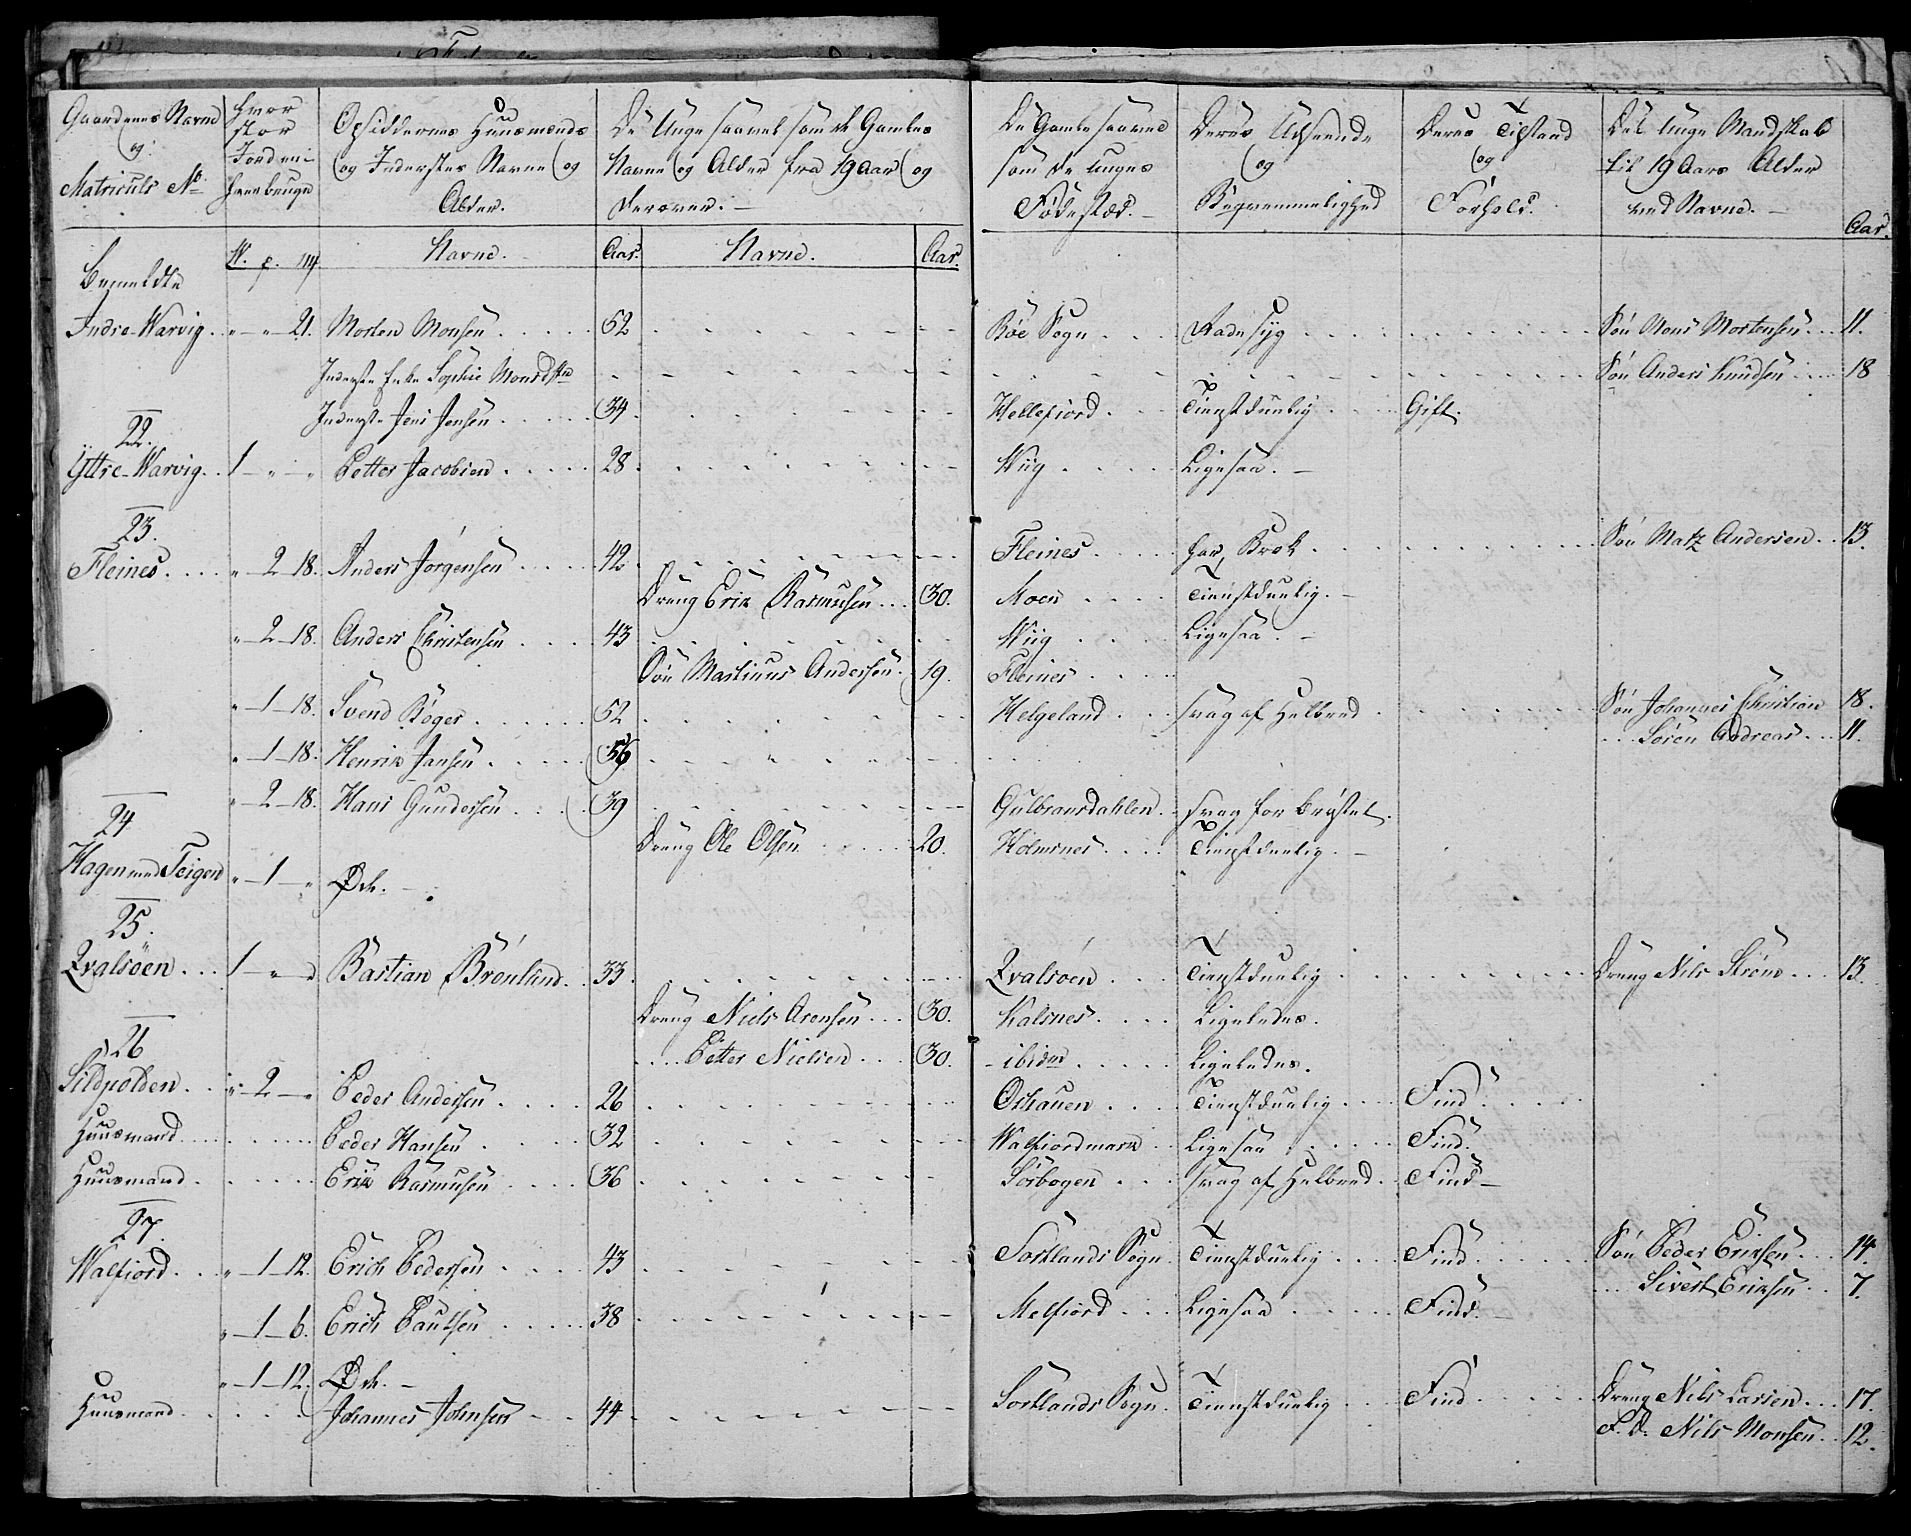 Gaardenes Navne
og
Matriculs No
hvor stor Jord en hver bruge
Opsiddernes Huusmænds og Inderstes Navne og Alder.
De Unge saavel som de Gamles Navne og Alder fra 19 Aar og derover. —
De Gamle saavel som de unges Fødested. —
Deres Udseende og Beqvemmelighed
Deres Tilstand og Forhold.
Det unge Mandskab til 19 Aars Alder ved Navne. —
Aar.
W. p. m
Navne.
Aar.
Navne.
Aar.
bemeldte
Indre-Warvig . . " — " — 21. Morten Monsen . . . . 52 . . . Bøe Sogn . . . Radesyg . . . Søn Mons Mortensen . . . 11.
Inderste Enke Sophie Monsdtr . . . Søn Anders Knudsen . . . 18
Inderste Jens Jensen . . . . 34 . . . Hellefiord . . . Tienstduelig . . . Gift.
22.
Yttre-Warvig . . 1 — " — " Petter Jacobsen . . . . 28 . . . Wiig . . . . Ligesaa. —
23.
Fleines . . . . " — 2 — 18. Anders Jørgensen . . . . 42 . . . Fleines . . . . har Brok . . . Søn Matz Andersen . . 13.
Dreng Erik Rasmusen . . . 30. Moen . . . . Tienstduelig. —
" — 2 — 18. Anders Christensen . . . . 43 . . . Wiig . . . . Ligesaa. —
Søn Martinus Andersen . 19. Fleines . . . .
" — 1 — 18. Svend Røger . . . . . . 52 . . . Helgeland . . . svag af Helbred . . . Søn Johannes Christian 18.
" — 1 — 18. Henrik Jansen . . . . . 56 . . . Søren Andreas . . . 11.
" — 2 — 18. Hans Gundersen . . . . 39 . . . Gulbransdahlen . . svag for brystet.
24
Dreng Ole Olsen . . . . . 20. Holmsnes . . . . Tienstduelig. —
Hagen med Teigen " — 1 — " Øde. —
25.
Qvalsøen . . . 1 — " — " Bastian Brønlund . . 33 . . . Qvalsøen . . . Tienstduelig . . . Dreng Nils Strøm . . . 13.
Dreng Niels Arensen . . . 30. Kalsnes . . . . Ligeledes.
26
. . . . Petter Nielsen . . . 30. — ibidm . . . . . Ligeledes.
Sildpolden . . " — 2 — " Peder Andersen . . . . 26 . . . Oshauen . . . . Tienstduelig . . . . Find. . . . .
Huusmand . . . Peder Hansen . . . . 32 . . . Walfiordmark . Ligesaa . . . . . Find.
Huusmand . . . Erik Rasmusen . . . . 36 . . . Sørbogen . . . svag af Helbred . . Find —
27.
Walfiord . . . " — 1 — 12. Erich Pedersen . . . . 43 . . . Sortlands Sogn . Tienstduelig . . . . Find . . . Søn Peder Eriksen . . . 14.
. . . Sivert Eriksen . . 7.
" — 1 — 6. Erich Paulsen . . . . . 38 . . . Melfiord . . . Ligesaa . . . . . Find. —
" — 1 — 12. Øde. —
Huusmand . . . Johannes Johnsen . . . 44 . . . Sortlands Sogn . Tienstduelig . . . Find . . . Dreng Nils Larsen . . . 17.
F. D. Nils Monsen . . 12.